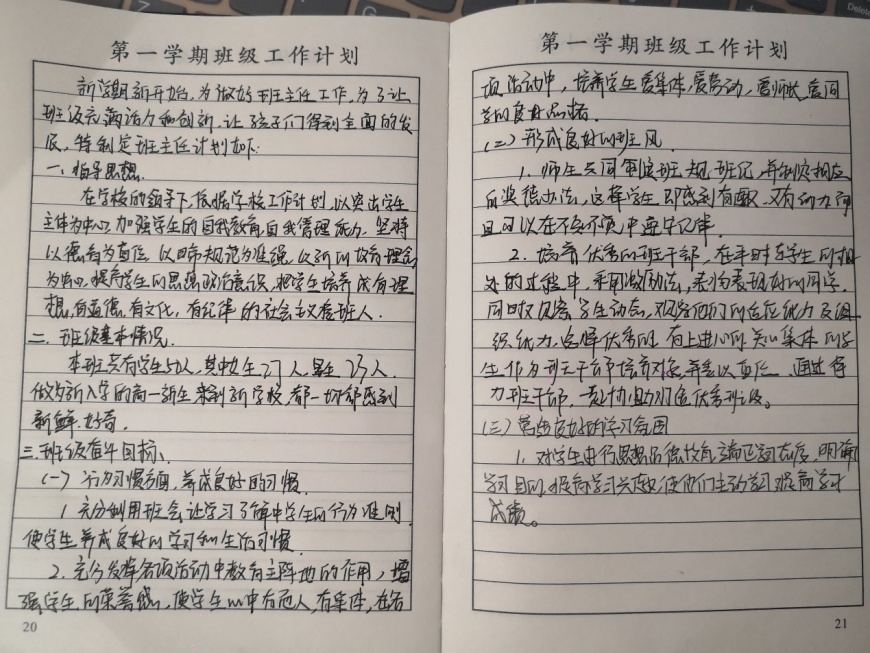 第一学期班级工作计划
新学期新开始，为做好班主任工作，为了让
班级充满活力和创新，让孩子们得到全面的发
展，特制定班主任计划如下：
一、指导思想
在学校的领导下，依据学校工作计划，以突出学生
主体为中心，加强学生的自我教育，自我管理能力，坚持
以德育为首位，以日常规范为准绳，以新的教育理念
为中心，提高学生的思想政治意识，把学生培养成有理
想，有道德，有文化，有纪律的社会主义接班人。
二、班级基本情况
本班共有学生50人，其中女生27人，男生23人。
做为新入学的高一新生来到新学校，都一切都感到
新鲜、好奇。
三、班级奋斗目标
(一) 行为习惯方面，养成良好的习惯
1. 充分利用班会让学习了解中学生的行为准则，
使学生养成良好的学习和生活习惯
2. 充分发挥各项活动中教育主阵地的作用，增
强学生的荣誉感，使学生心中有他人，有集体，在各
20
第一学期班级工作计划
项活动中，培养学生爱集体，爱劳动，爱师长，爱同
学的良好品格。
(二) 形成良好的班风
1. 师生共同制定班规班纪，并制定相应
的奖惩办法，这样学生即感到有趣，又有动力而
且可以在不知不觉中遵守纪律。
2. 培养优秀的班干部，在平时与学生的相
处的过程中，采用激励法，表扬表现好的同学，
同时仪观察学生动态，观察他们的适应能力及组
织能力，选择优秀的，有上进心的，关心集体的学
生作为班干部培养对象，并委以重任。通过得
力班干部，来协助打造优秀班级。
(三) 营造良好的学习氛围
1. 对学生进行思想品德教育，端正学习态度，明确
学习目的，提高学习兴趣，使他们主动学习，提高学习
成绩。
21
Delete